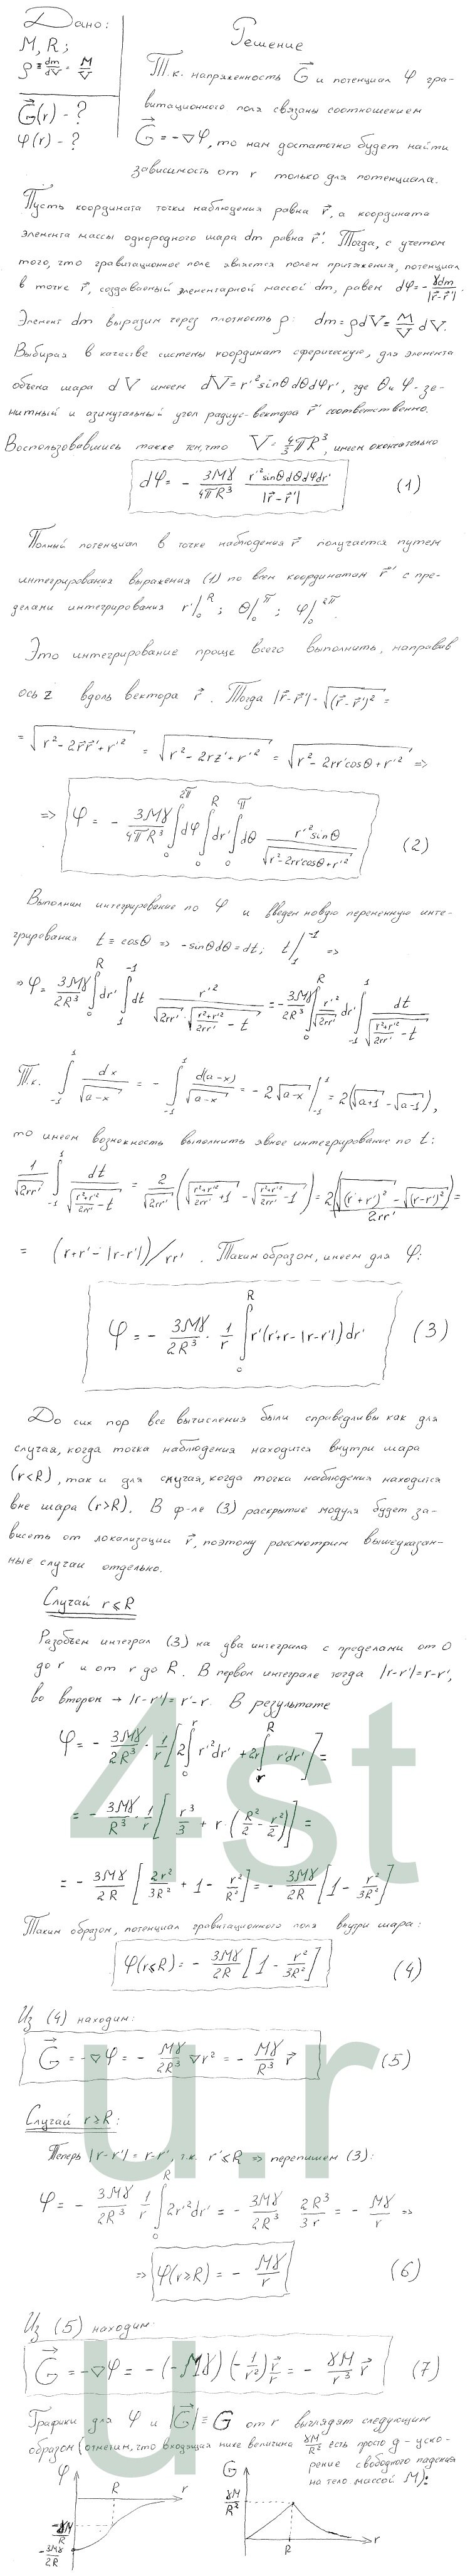 Дано:
M, R;
ρ ≡ dm/dV = M/V
G⃗(r) - ?
φ(r) - ?
Решение
Т.к. напряженность G⃗ и потенциал φ гра-
витационного поля связаны соотношением
G⃗ = -∇φ, то нам достаточно будет найти
зависимость от r только для потенциала.
Пусть координата точки наблюдения равна r⃗, а координата
элемента массы однородного шара dm равна r⃗'. Тогда, с учетом
того, что гравитационное поле является полем притяжения, потенциал
в точке r⃗, создаваемый элементарной массой dm, равен dφ = -γdm/|r⃗-r⃗'|.
Элемент dm выразим через плотность ρ: dm = ρdV = M/V dV.
Выбирая в качестве системы координат сферическую, для элемента
объема шара dV имеем dV = r'²sinθdθdφdr', где θ и φ - зе-
нитный и азимутальный угол радиус-вектора r⃗' соответственно.
Воспользовавшись также тем, что V = 4/3 πR³, имеем окончательно
dφ = - 3Mγ/4πR³ r'²sinθdθdφdr'/|r⃗-r⃗'| (1)
Полный потенциал в точке наблюдения r⃗ получается путем
интегрирования выражения (1) по всем координатам r⃗' с пре-
делами интегрирования r'|₀ᴿ; θ|₀^π; φ|₀^2π.
Это интегрирование проще всего выполнить, направив
ось z вдоль вектора r⃗. Тогда |r⃗-r⃗'| = √(r⃗-r⃗')² =
= √(r²-2r⃗r⃗'+r'²) = √(r²-2rz'+r'²) = √(r²-2rr'cosθ+r'²) =>
=> φ = - 3Mγ/4πR³ ∫₀^2π dφ ∫₀^R dr' ∫₀^π dθ r'²sinθ/√(r²-2rr'cosθ+r'²) (2)
Выполним интегрирование по φ и введем новую переменную инте-
грирования t ≡ cosθ => -sinθdθ = dt; t|₁^-1 =>
=> φ = 3Mγ/2R³ ∫₀^R dr' ∫₁^-1 dt r'²/(√(2rr')·√((r²+r'²)/2rr' - t)) = - 3Mγ/2R³ ∫₀^R r'²/√(2rr') dr' ∫₋₁^1 dt/√((r²+r'²)/2rr' - t)
Т.к. ∫₋₁^1 dx/√(a-x) = - ∫₋₁^1 d(a-x)/√(a-x) = -2√(a-x)|₋₁^1 = 2(√(a+1) - √(a-1)),
то имеем возможность выполнить явное интегрирование по t:
1/√(2rr') ∫₋₁^1 dt/√((r²+r'²)/2rr' - t) = 2/√(2rr') (√((r²+r'²)/2rr' + 1) - √((r²+r'²)/2rr' - 1)) = 2(√(r+r')² - √(r-r')²)/2rr' =
= (r+r'-|r-r'|)/rr'. Таким образом, имеем для φ:
φ = - 3Mγ/2R³ · 1/r ∫₀^R r'(r'+r-|r-r'|)dr' (3)
До сих пор все вычисления были справедливы как для
случая, когда точка наблюдения находится внутри шара
(r<R), так и для случая, когда точка наблюдения находится
вне шара (r>R). В ф-ле (3) раскрытие модуля будет за-
висеть от локализации r⃗, поэтому рассмотрим вышеуказан-
ные случаи отдельно.
Случай r⩽R
Разобьем интеграл (3) на два интеграла с пределами от 0
до r и от r до R. В первом интеграле тогда |r-r'|=r-r',
во втором → |r-r'|=r'-r. В результате
φ = - 3Mγ/2R³ · 1/r [2∫₀^r r'²dr' + 2r∫ᵣ^R r'dr'] =
= - 3Mγ/R³ · 1/r [r³/3 + r·(R²/2 - r²/2)] =
= - 3Mγ/2R [2r²/3R² + 1 - r²/R²] = - 3Mγ/2R [1 - r²/3R²]
Таким образом, потенциал гравитационного поля внутри шара:
φ(r⩽R) = - 3Mγ/2R [1 - r²/3R²] (4)
Из (4) находим:
G⃗ = -∇φ = - Mγ/2R³ ∇r² = - Mγ/R³ r⃗ (5)
Случай r⩾R:
Теперь |r-r'| = r-r', т.к. r'⩽R => перепишем (3):
φ = - 3Mγ/2R³ 1/r ∫₀^R 2r'²dr' = - 3Mγ/2R³ 2R³/3r = - Mγ/r =>
=> φ(r⩾R) = - Mγ/r (6)
Из (5) находим:
G⃗ = -∇φ = -(-Mγ)(-1/r²) r⃗/r = - γM/r³ r⃗ (7)
Графики для φ и |G⃗| ≡ G от r выглядят следующим
образом (отметим, что входящая ниже величина γM/R² есть просто g - уско-
рение свободного падения
на тело массой M):
φ
R
r
-γM/R
-3Mγ/2R
G
γM/R²
R
r
4st
u.r
u